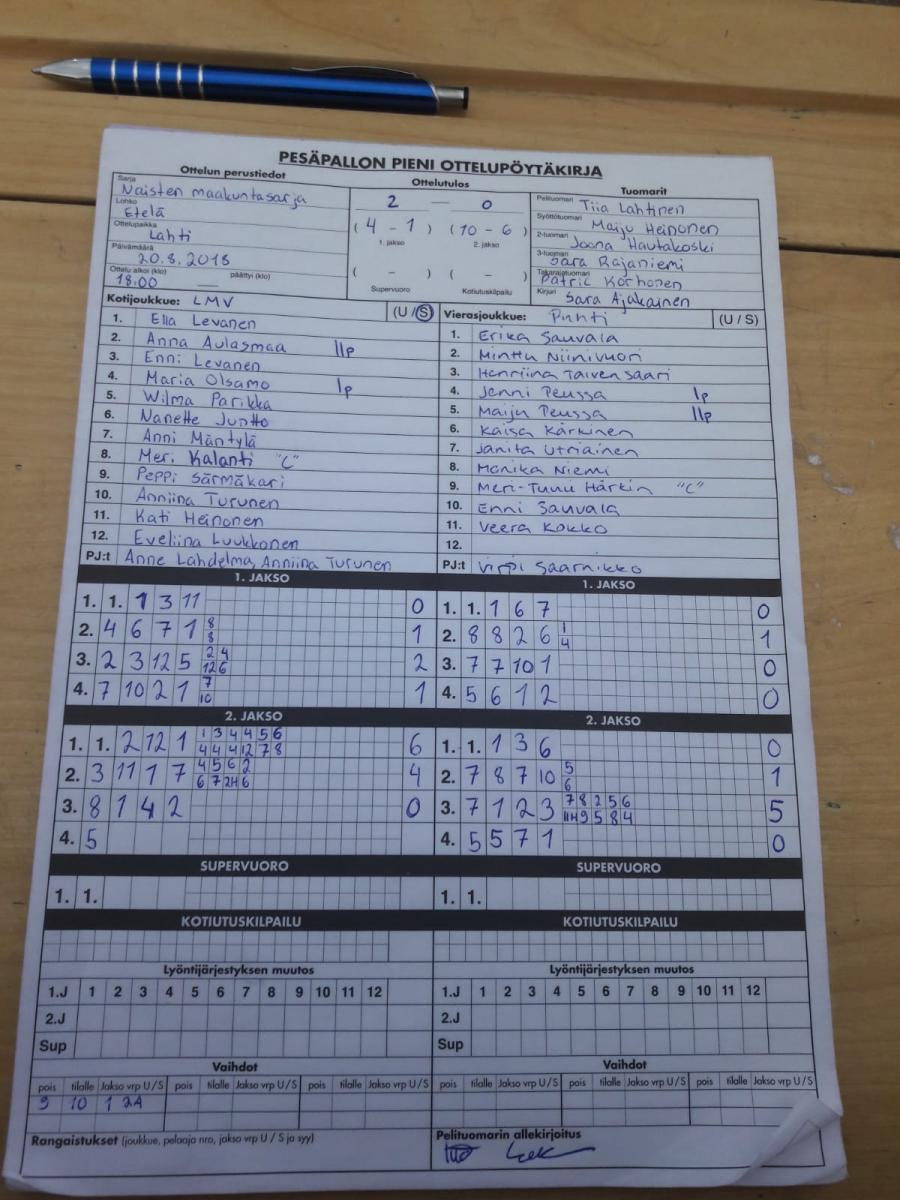 PESÄPALLON PIENI OTTELUPÖYTÄKIRJA
Ottelun perustiedot
Sarja
Naisten maakuntasarja
Lohko
Etelä
Ottelupaikka
Lahti
Päivämäärä
20.8.2018
Ottelu alkoi (klo) päättyi (klo)
18:00
Ottelutulos
2 — 0
( 4 - 1 ) ( 10 - 6 )
1. jakso 2. jakso
( - ) ( - )
Supervuoro Kotiutuskilpailu
Tuomarit
Pelituomari Tiia Lahtinen
Syöttötuomari Maiju Heinonen
2-tuomari Joona Hautakoski
3-tuomari Sara Rajaniemi
Takarajatuomari Patric Korhonen
Kirjuri Sara Ajakainen
Kotijoukkue: LMV (U / S)
1. Ella Levanen
2. Anna Aulasmaa IIp
3. Enni Levanen
4. Maria Olsamo Ip
5. Wilma Parikka
6. Nanette Juntto
7. Anni Mäntylä
8. Meri Kalanti "C"
9. Peppi Särmäkari
10. Anniina Turunen
11. Kati Heinonen
12. Eveliina Luukkonen
PJ:t Anne Lahdelma, Anniina Turunen
Vierasjoukkue: Puhti (U / S)
1. Erika Sauvala
2. Minttu Niinivuori
3. Henriina Taivensaari
4. Jenni Peussa Ip
5. Maiju Peussa IIp
6. Kaisa Kärkinen
7. Janita Utriainen
8. Monika Niemi
9. Meri-Tuuli Härkin "C"
10. Enni Sauvala
11. Veera Kokko
12.
PJ:t Virpi Saarnikko
1. JAKSO
1. 1. 1 3 11 0
2. 4 6 7 1 8 1
8
3. 2 3 12 5 2 4 2
12 6
4. 7 10 2 1 7 1
10
1. JAKSO
1. 1. 1 6 7 0
2. 8 8 2 6 1 1
4
3. 7 7 10 1 0
4. 5 6 1 2 0
2. JAKSO
1. 1. 2 12 1 1 3 4 4 5 6 6
4 4 4 12 7 8
2. 3 11 1 7 4 5 6 2 4
6 7 2H 6
3. 8 1 4 2 0
4. 5
2. JAKSO
1. 1. 1 3 6 0
2. 7 8 7 10 5 1
6
3. 7 1 2 3 7 8 2 5 6 5
11H 9 5 8 4
4. 5 5 7 1 0
SUPERVUORO
1. 1.
SUPERVUORO
1. 1.
KOTIUTUSKILPAILU
KOTIUTUSKILPAILU
Lyöntijärjestyksen muutos
1.J 1 2 3 4 5 6 7 8 9 10 11 12
2.J
Sup
Lyöntijärjestyksen muutos
1.J 1 2 3 4 5 6 7 8 9 10 11 12
2.J
Sup
Vaihdot
pois tilalle Jakso vrp U / S pois tilalle Jakso vrp U / S pois tilalle Jakso vrp U / S
9 10 1 2A
Vaihdot
pois tilalle Jakso vrp U / S pois tilalle Jakso vrp U / S pois tilalle Jakso vrp U / S
Rangaistukset (joukkue, pelaaja nro, jakso vrp U / S ja syy)
Pelituomarin allekirjoitus